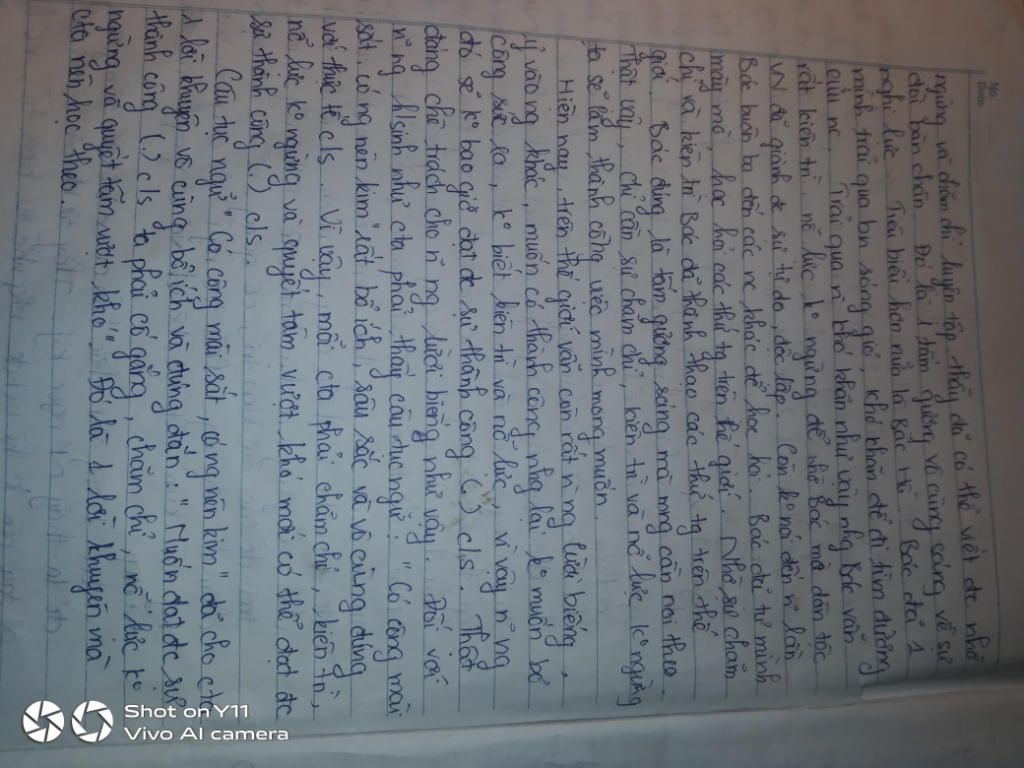 No.
Date
ngừng và chăm chỉ luyện tập, thầy đã có thể viết đc nhờ
đôi bàn chân. Đó là 1 tấm gương vô cùng sáng về sự
nghị lực. Tiêu biểu hơn nữa là Bác Hồ. Bác đã 1
mình trải qua bn sóng gió, khó khăn để đi tìm đường
cứu nc. Trải qua n~ khó khăn như vậy nhg Bác vẫn
rất kiên trì, nỗ lực k° ngừng để nhờ Bác mà dân tộc
VN đã giành đc sự tự do, độc lập. Còn k° nói đến n~ lần
Bác buôn ba đến các nc khác để học hỏi. Bác đã tự mình
mày mò, học hỏi các thứ tg trên thế giới. Nhờ sự chăm
chỉ và kiên trì Bác đã thành thạo các thứ tg trên thế
giới. Bác đúng là tấm gương sáng mà mng cần noi theo.
Thật vậy, chỉ cần sự chăm chỉ, kiên trì và nỗ lực k° ngừng
ta sẽ làm thành công việc mình mong muốn.
Hiện nay, trên thế giới vẫn còn rất n~ ng lười biếng,
ỷ vào ng khác, muốn có thành công nhg lại k° muốn bỏ
công sức ra, k° biết kiên trì và nỗ lực, vì vậy n~ ng
đó sẽ k° bao giờ đạt đc sự thành công (.) c/s. Thật
đáng chê trách cho n~ ng lười biếng như vậy. Đối với
n~ ng h/sinh như cta phải thấy câu tục ngữ: "Có công mài
sắt, có ng nên kim" rất bổ ích, sâu sắc và vô cùng đúng
với thực tế c/s. Vì vậy, mỗi cta phải chăm chỉ, kiên trì,
nỗ lực k° ngừng và quyết tâm vượt khó mới có thể đạt đc
sự thành công (.) c/s.
Câu tục ngữ "Có công mài sắt, có ng nên kim" đã cho cta
1 lời khuyên vô cùng bổ ích và đúng đắn. "Muốn đạt đc sự
thành công (.) c/s ta phải cố gắng, chăm chỉ, nỗ lực k°
ngừng và quyết tâm vượt khó". Đó là 1 lời khuyên mà
cta nên học theo.
Shot on Y11
Vivo AI camera